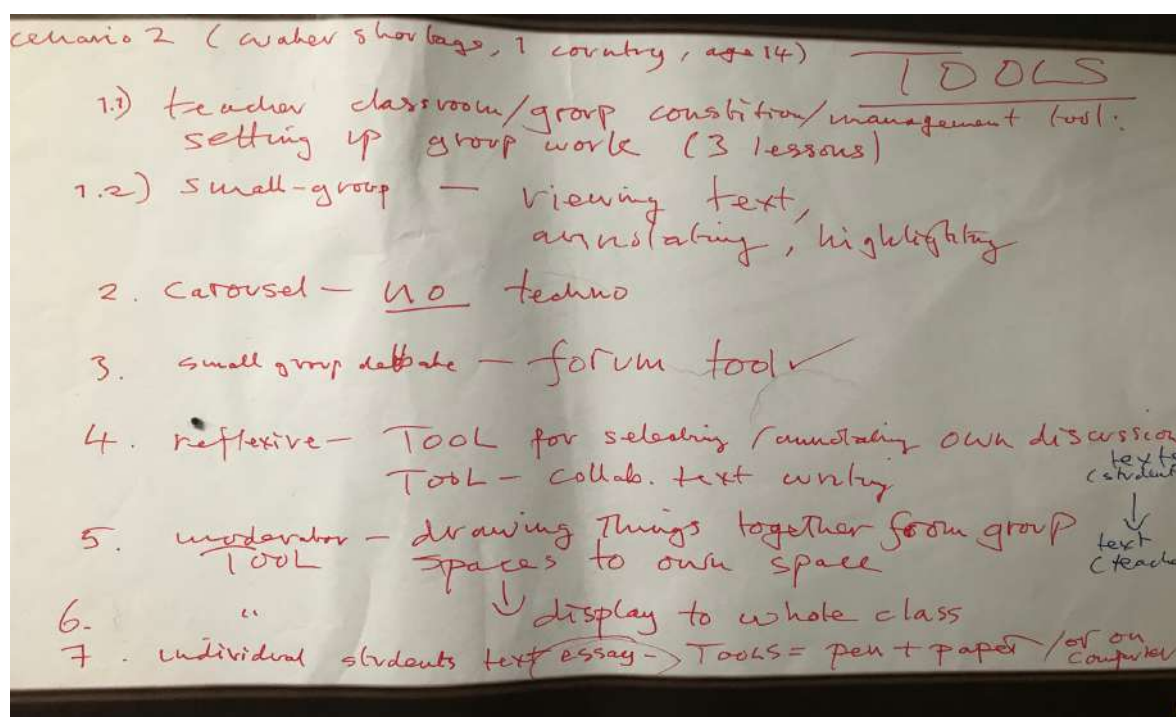 cenario 2 (water shortage, 1 country, age 14)
TOOLS
1.1) teacher classroom/group constition/management tool:
setting up group work (3 lessons)
1.2) small-group — viewing text,
annotating, highlighting
2. Carousel — no techno
3. small group debate — forum tool ✓
4. reflexive — TOOL for selecting / annotating own discussion
texts
(student
TOOL — collab. text writing
↓
text
(teache
5. moderator — drawing Things together from group
TOOL spaces to own space
↓
6. " display to whole class
7. individual students text essay — TOOLS = pen + paper / or on
computer